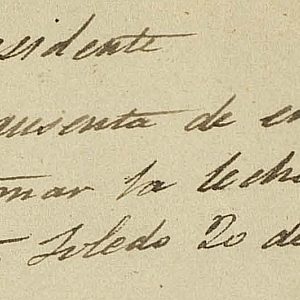 esidente
ausenta de en
omar la leche
Toledo 20 de